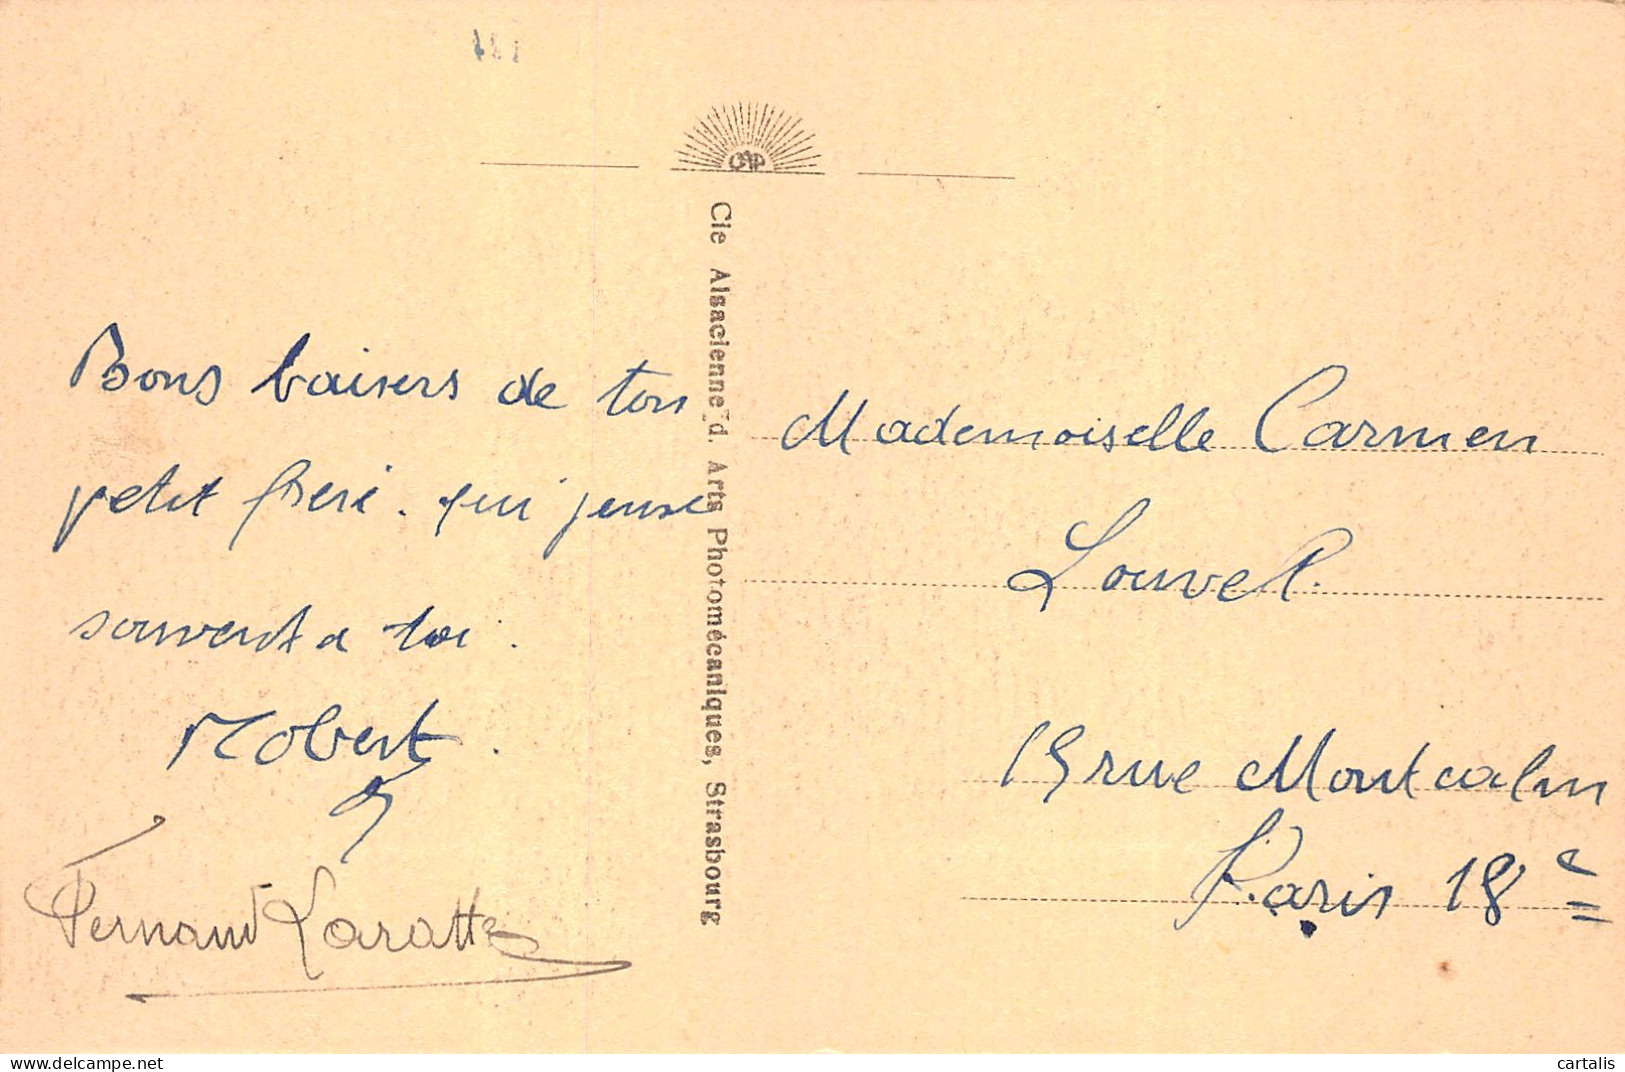 CAP
Cie Alsacienne d. Arts Photomécaniques, Strasbourg
Bons baisers de ton
petit frere. qui pense
souvent a toi.
Robert.
Fernand Laratte
Mademoiselle Carmen
Louvel.
19 rue Montcalm
Paris 18e
cartalis